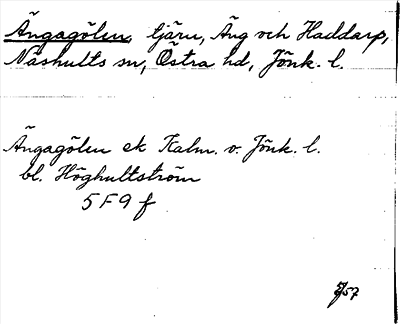 Ängagölen, tjärn, Äng och Haddarp,
Näshults sn, Östra hd, Jönk. l.
Ängagölen ek Kalm. v. Jönk. l.
bl. Höghultström
5 F 9 f
57